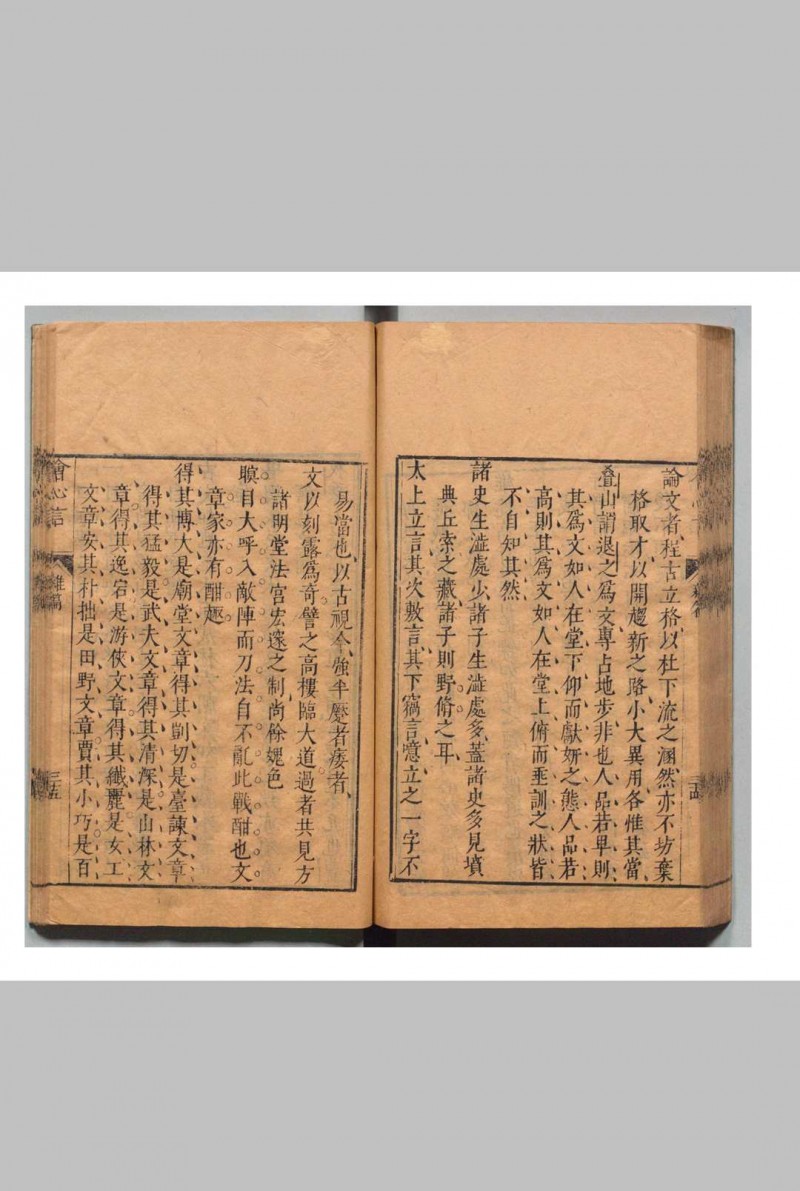 論文者程古立格以杜下流之溷然亦不坊棄
格取才以開趨新之路小大異用各惟其當
叠山謂退之爲文專占地步非也人品若卑則
其爲文如人在堂下仰而獻妍之態人品若
高則其爲文如人在堂上俯而垂訓之狀皆
不自知其然
諸史生澁處少諸子生澁處多蓋諸史多見墳
典丘索之藏諸子則野脩之耳
太上立言其次敷言其下竊言噫立之一字不
易當也以古視今強半躄者痿者
文以刻露爲奇譬之高樓臨大道過者共見方
諸明堂法宫宏邃之制尚餘媿色
瞋目大呼入敵陣而刀法自不亂此戰酣也文
章家亦有酣趣
得其博大是廟堂文章得其剴切是臺諫文章
得其猛毅是武夫文章得其清深是山林文
章得其逸宕是游俠文章得其纖麗是女工
文章安其朴拙是田野文章賈其小巧是百
會心言
雄篇
三五